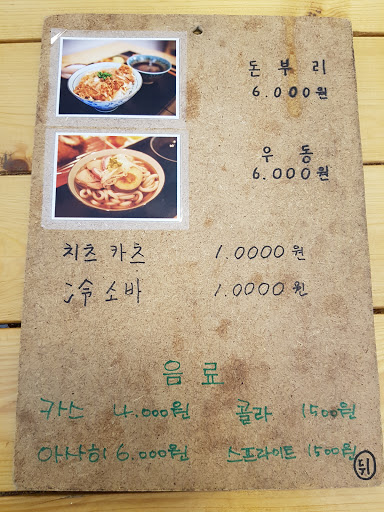 돈부리
6.000원
우동
6.000원
치즈카츠 1.0000원
冷소바 1.0000원
음료
카스 4.000원 콜라 1500원
아사히 6.000원 스프라이트 1500원
뒤